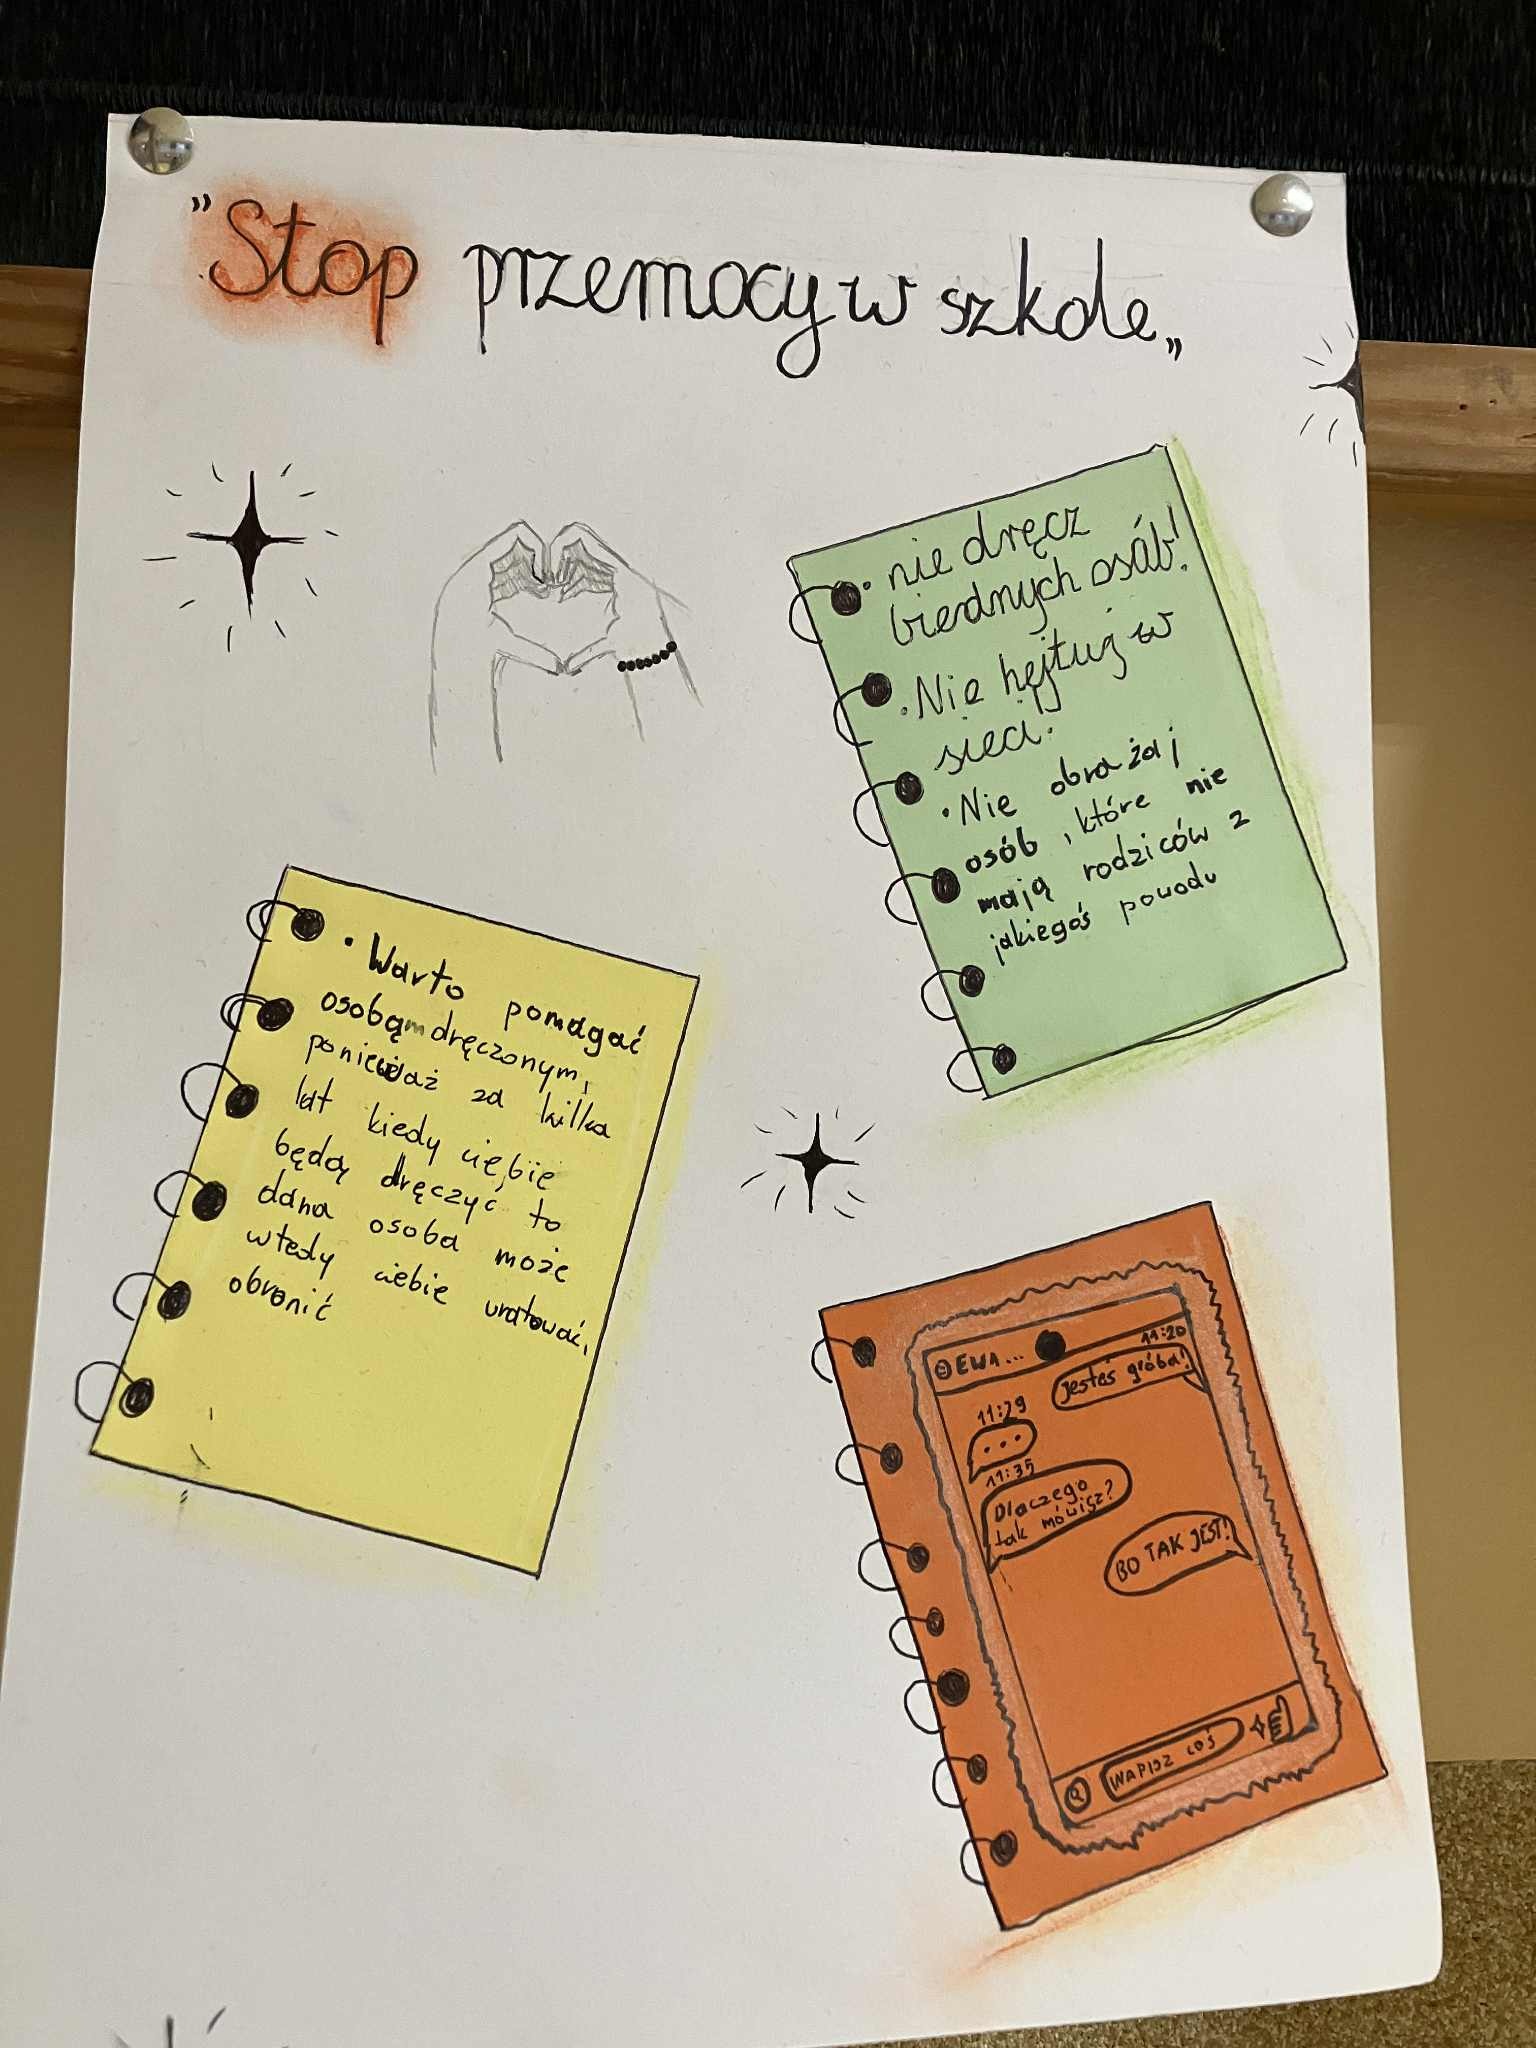 "Stop przemocy w szkole„
• nie dręcz
biednych osób!
• Nie hejtuj w
sieci.
• Nie obrażaj
osób, które nie
mają rodziców z
jakiegoś powodu
• Warto pomagać
osobąm dręczonym,
ponieważ za kilka
lat kiedy ciebie
będą dręczyć to
dana osoba może
wtedy ciebie uratować,
obronić
EWA...
11:20
jesteś gróba!
11:29
...
11:35
Dlaczego
tak mówisz?
BO TAK JEST!
NAPISZ COŚ